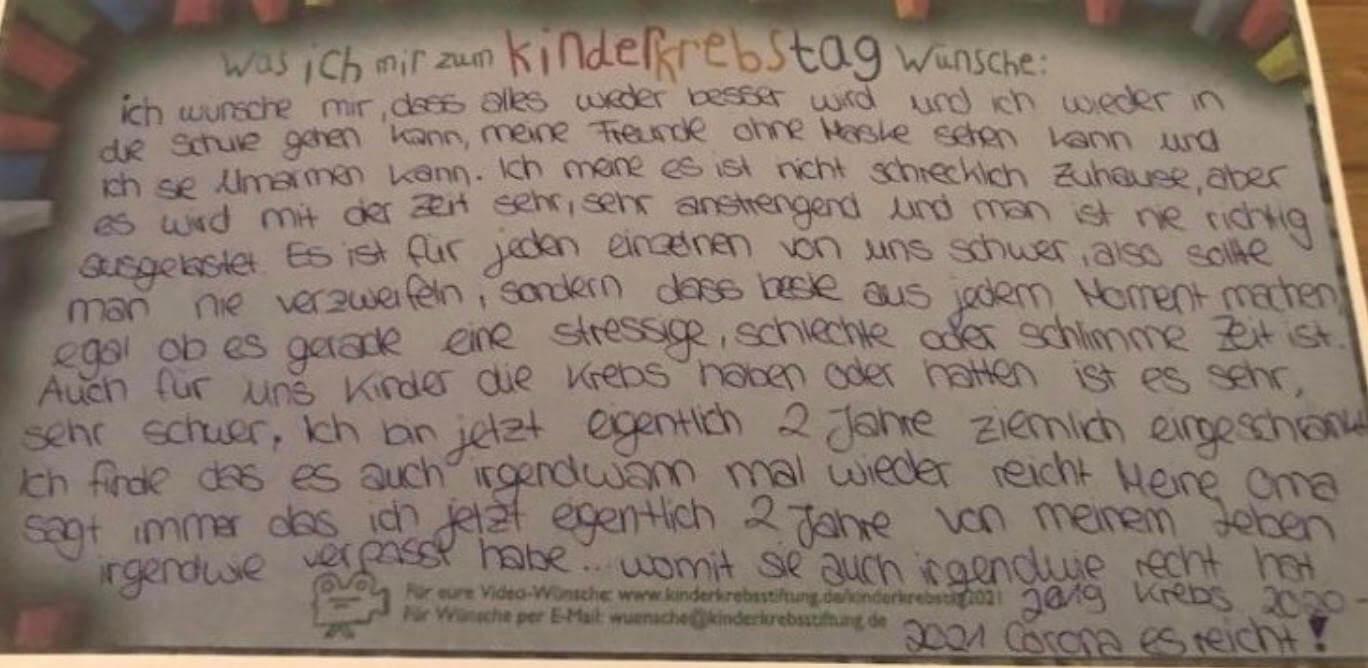 Was ich mir zum Kinderkrebstag wünsche:
ich wünsche mir, dass alles wieder besser wird und ich wieder in
die Schule gehen kann, meine Freunde ohne Maske sehen kann und
ich sie Umarmen kann. Ich meine es ist nicht schrecklich Zuhause, aber
es wird mit der Zeit sehr, sehr anstrengend und man ist nie richtig
ausgelastet. Es ist für jeden einzelnen von uns schwer, also sollte
man nie verzweifeln, sondern dass beste aus jedem Moment machen
egal ob es gerade eine stressige, schlechte oder schlimme Zeit ist.
Auch für uns Kinder die Krebs haben oder hatten ist es sehr,
sehr schwer. Ich bin jetzt eigentlich 2 Jahre ziemlich eingeschränkt
Ich finde das es auch irgendwann mal wieder reicht Meine Oma
sagt immer das ich jetzt eigentlich 2 Jahre von meinem Leben
irgendwie verpasst habe... womit sie auch irgendwie recht hat
Für eure Video-Wünsche: www.kinderkrebsstiftung.de/kinderkrebstag2021
2019 Krebs 2020-
Für Wünsche per E-Mail: wuensche@kinderkrebsstiftung.de
2021 Corona es reicht!